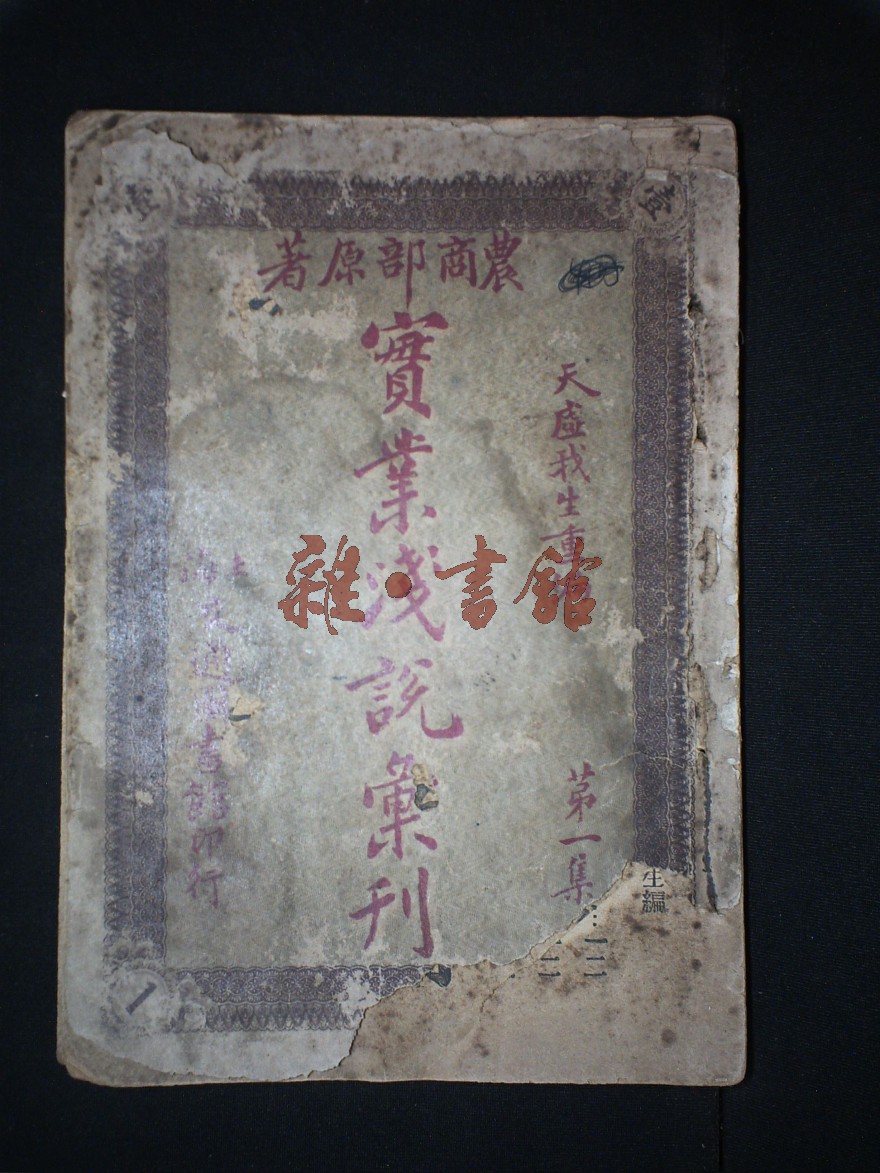 農商部原著
天虛我生重
第一集
實業淺說彙刊
海文通圖書館印行
壹
1
生編
一二
一二
雜·書館